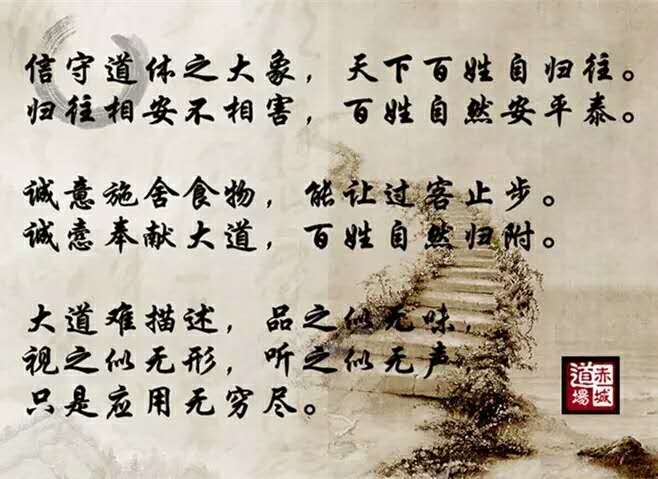 信守道体之大象，天下百姓自归往。
归往相安不相害，百姓自然安平泰。
诚意施舍食物，能让过客止步。
诚意奉献大道，百姓自然归附。
大道难描述，品之似无味，
视之似无形，听之似无声
只是应用无穷尽。
赤城
道場